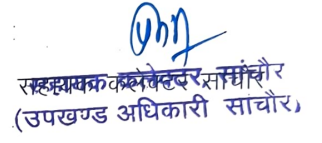 सहायक कलेक्टर, सांचौर
(उपखण्ड अधिकारी सांचौर)